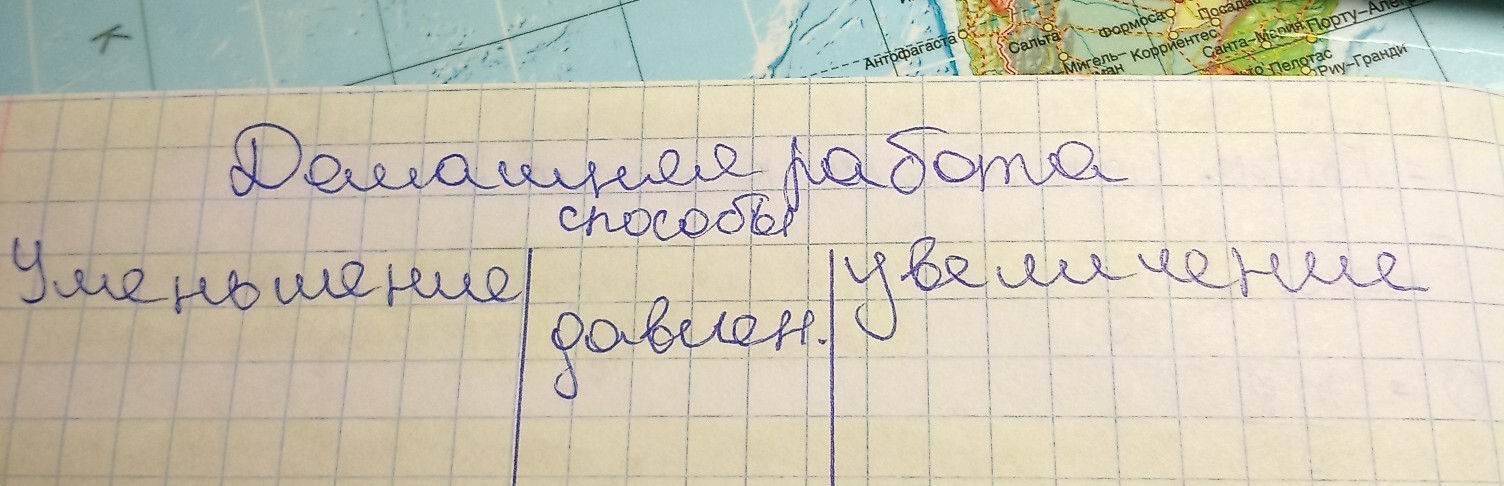 Антофагаста
Сальта
Формоса
Посадас
Мигель-
Корриентес
Санта-Мария
Порту-Алег
Пелотас
Риу-Гранди
Домашняя работа
способы
Уменьшение
давлен.
увеличение